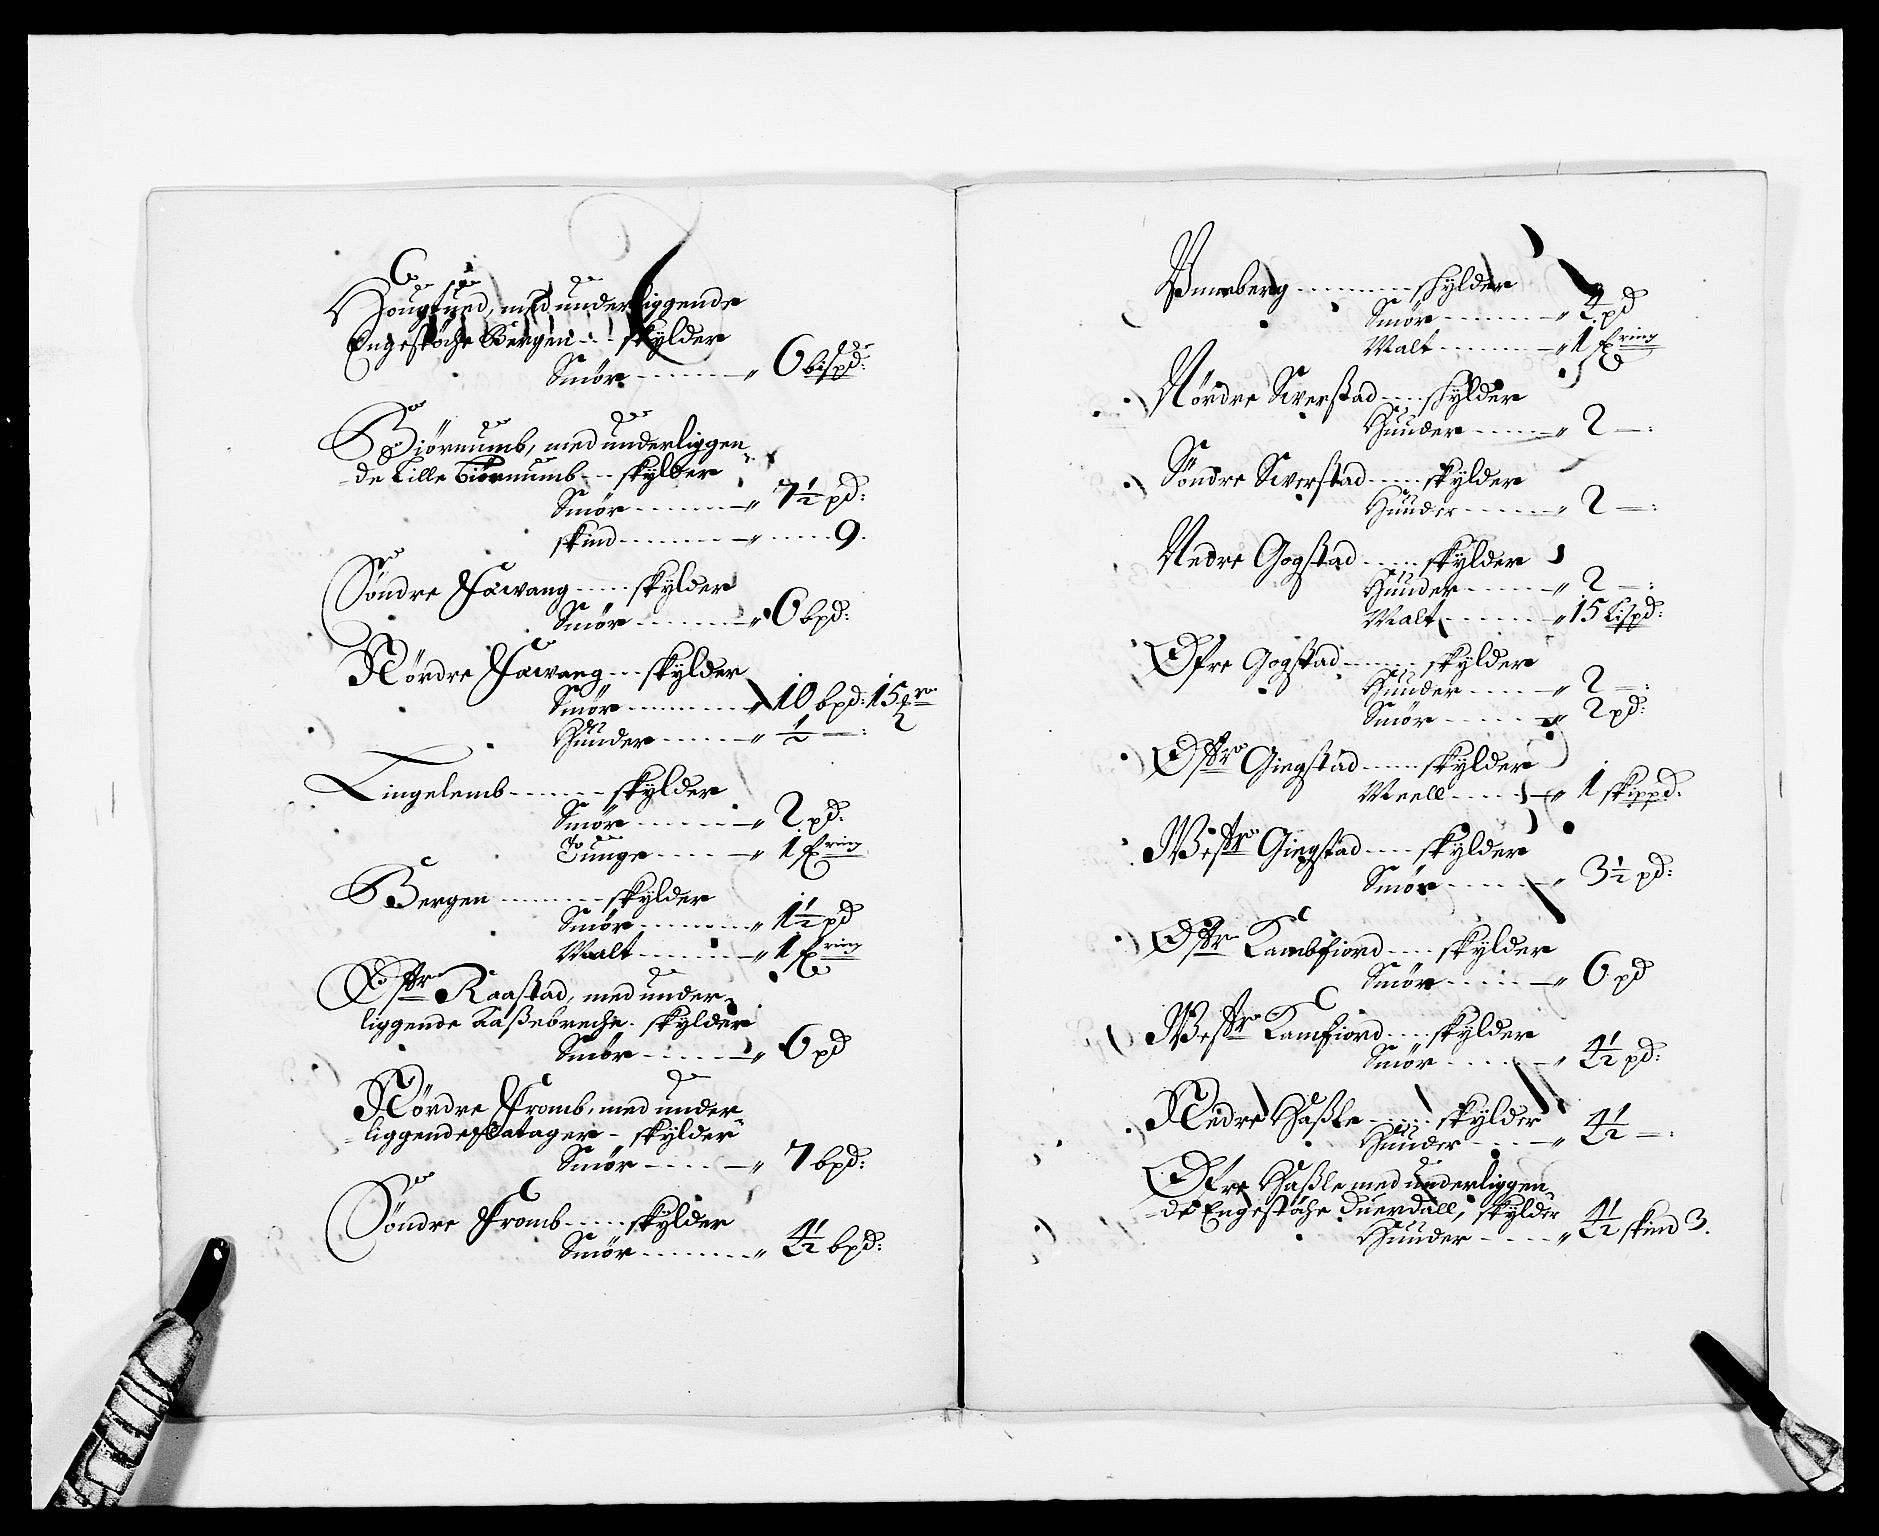 Hougtued, med underliggende
Engestöche Bergen - - - skylder
Smör - - - - - „ 6 bispd:
Biörnumb, med underliggen-
de Lille Biörnumb - - - skylder
Smör - - - - - „ 7½ pd:
skind - - - - - „ - - - - 9.
Söndre Fæwang - - - - skylder
Smör - - - - - „ 6 bpd:
Nördre Fæwang - - - skylder
Smör - - - - - „ 10 bpd: 15
Huuder - - - - „ ½ —: 2
Lingelemb - - - - - skylder
Smör - - - - - „ 2 pd:
Tunge - - - - „ 1 fring
Bergen - - - - - skylder
Smör - - - - - „ 1½ pd
Malt - - - - - „ 1 fring
Östr Raastad, med under-
liggende Kaßebreche. skylder
Smör - - - - - „ 6 pd
Nördre Fromb, med under
liggende Flatager - skylder
Smör - - - - - „ 7 bpd:
Söndre Fromb - - - - skylder
Smör - - - - - „ 4½ bpd:
Unneberg - - - - - skylder
Smör - - - - - „ 4 pd
Malt - - - - - „ 1 fring
Nördre Swerstad - - - skylder
Huuder - - - - „ 2 —:
Söndre Swerstad - - - - skylder
Huuder - - - - „ 2 —:
Nedre Gogstad - - - - skylder
Huuder - - - - „ 2 —:
Malt - - - - - „ 15 Lispd:
Öfre Gogstad - - - - skylder
Huuder - - - - „ 2 —:
Smör - - - - - „ 2 pd:
Östr Giegstad - - - - skylder
Meell - - - - „ 1 skippd:
Westr Giegstad - - - - skylder
Smör - - - - - „ 3½ pd:
Östr Kambfiord - - - skylder
Smör - - - - - „ 6 pd
Westr Kamfiord - - - skylder
Smör - - - - - „ 4½ pd:
Nedre Haßle - - - - skylder
Huuder - - - - „ 4½ —:
Öfre Haßle med underliggen-
de Engestöche Duerdall, skylder
Huuder - - - - „ 4½ skind 3.